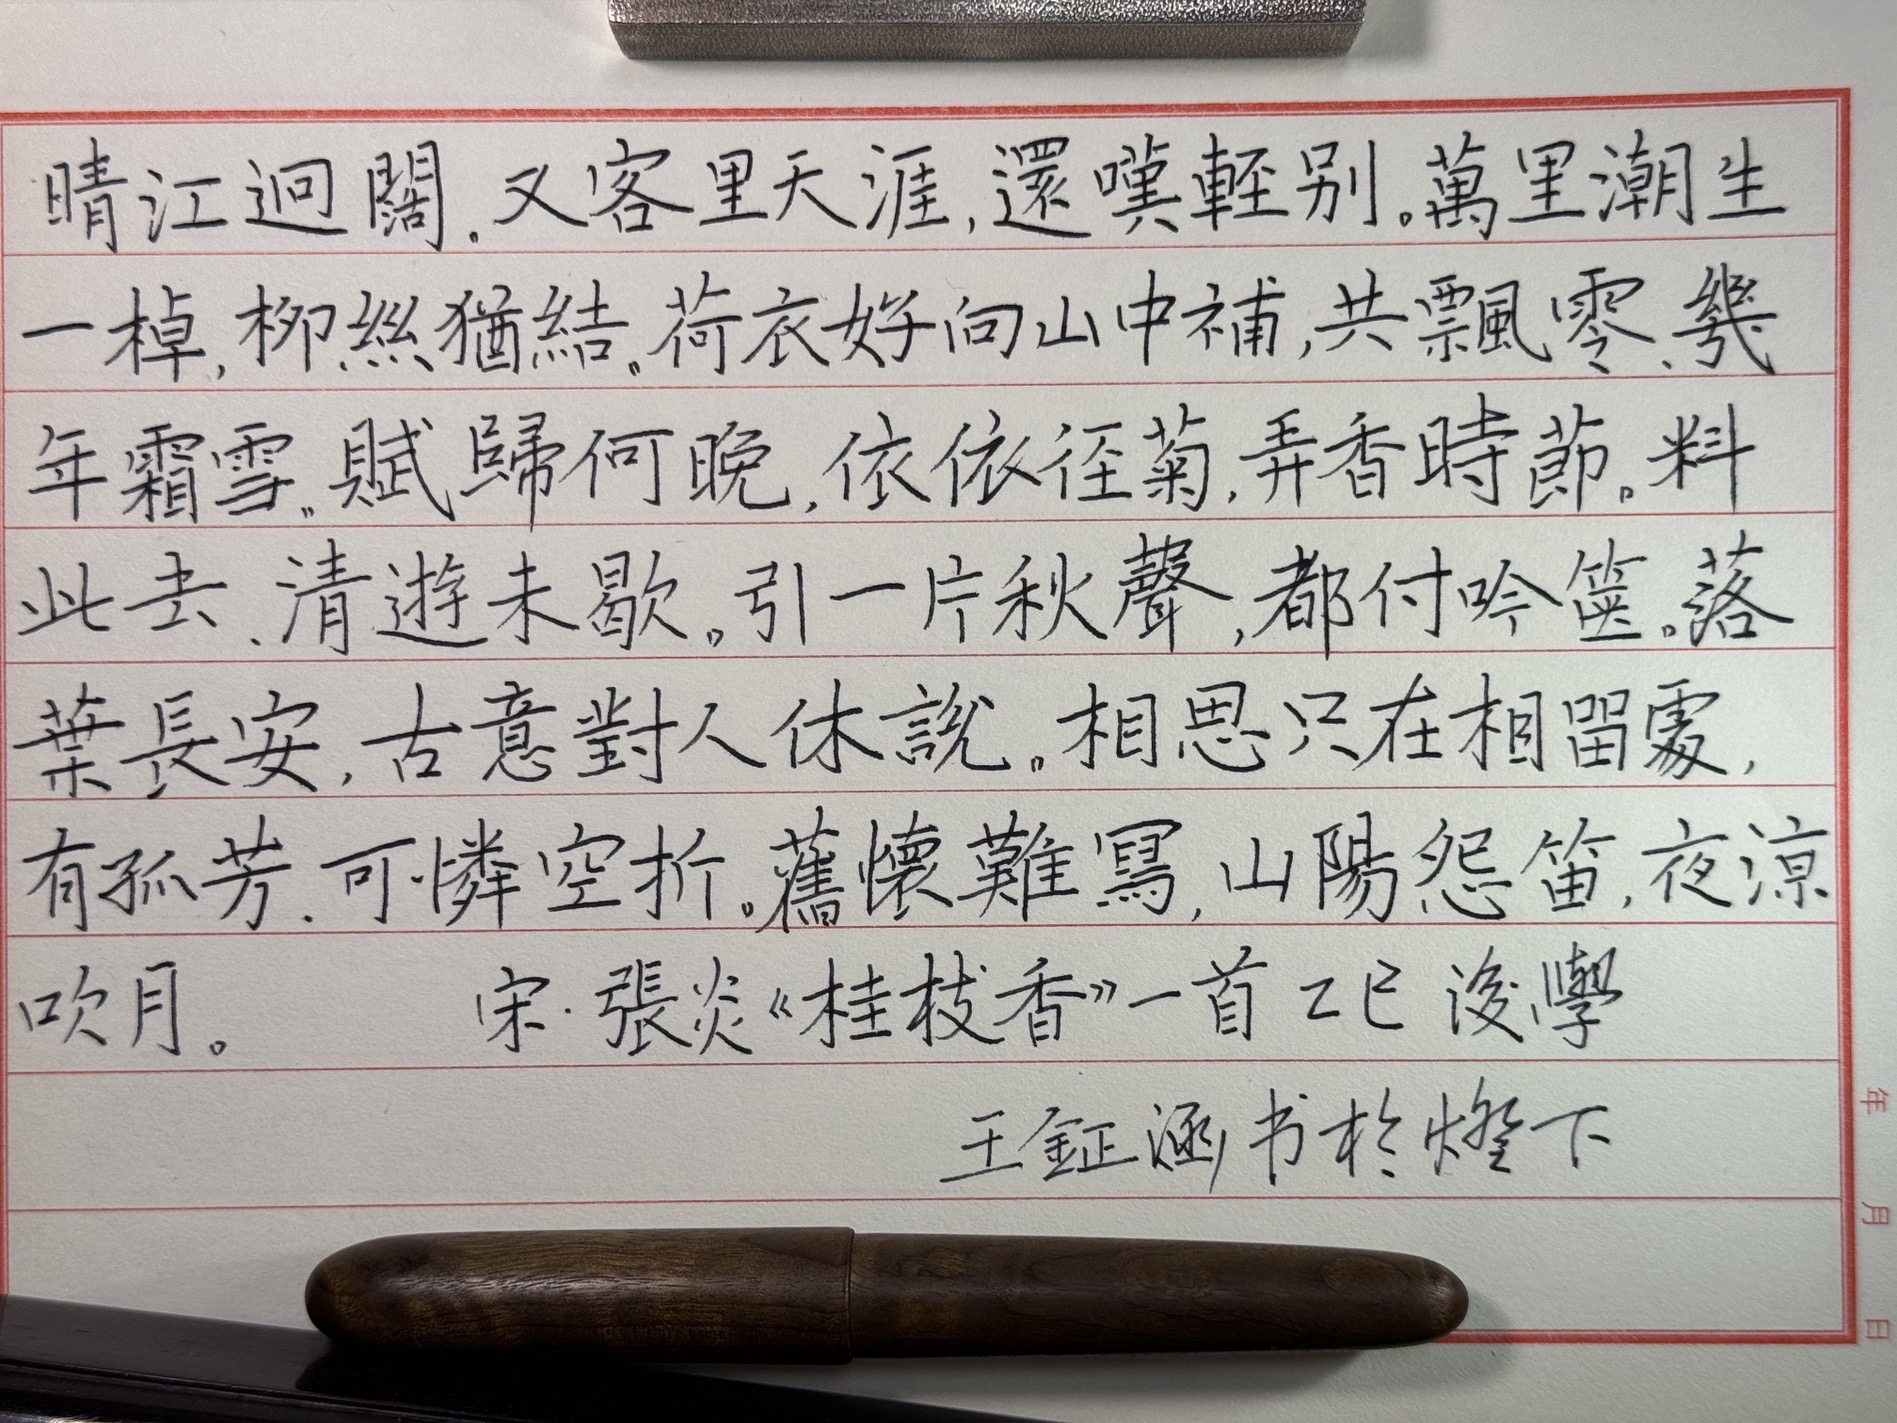 晴江迥闊，又客里天涯，還嘆輕别。萬里潮生
一棹，柳絲猶結。荷衣好向山中補，共飄零、幾
年霜雪。賦歸何晚，依依徑菊，弄香時節。料
此去、清遊未歇。引一片秋聲，都付吟篋。落
葉長安，古意對人休說。相思只在相留處，
有孤芳、可憐空折。舊懷難寫，山陽怨笛，夜涼
吹月。 宋·張炎《桂枝香》一首 乙巳 後學
王鉦涵书於燈下
年 月 日